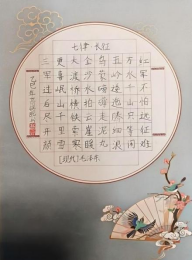 七律 长征
红军不怕远征难
万水千山只等闲
五岭逶迤腾细浪
乌蒙磅礴走泥丸
金沙水拍云崖暖
大渡桥横铁索寒
更喜岷山千里雪
三军过后尽开颜
[现代]毛泽东
乙巳年